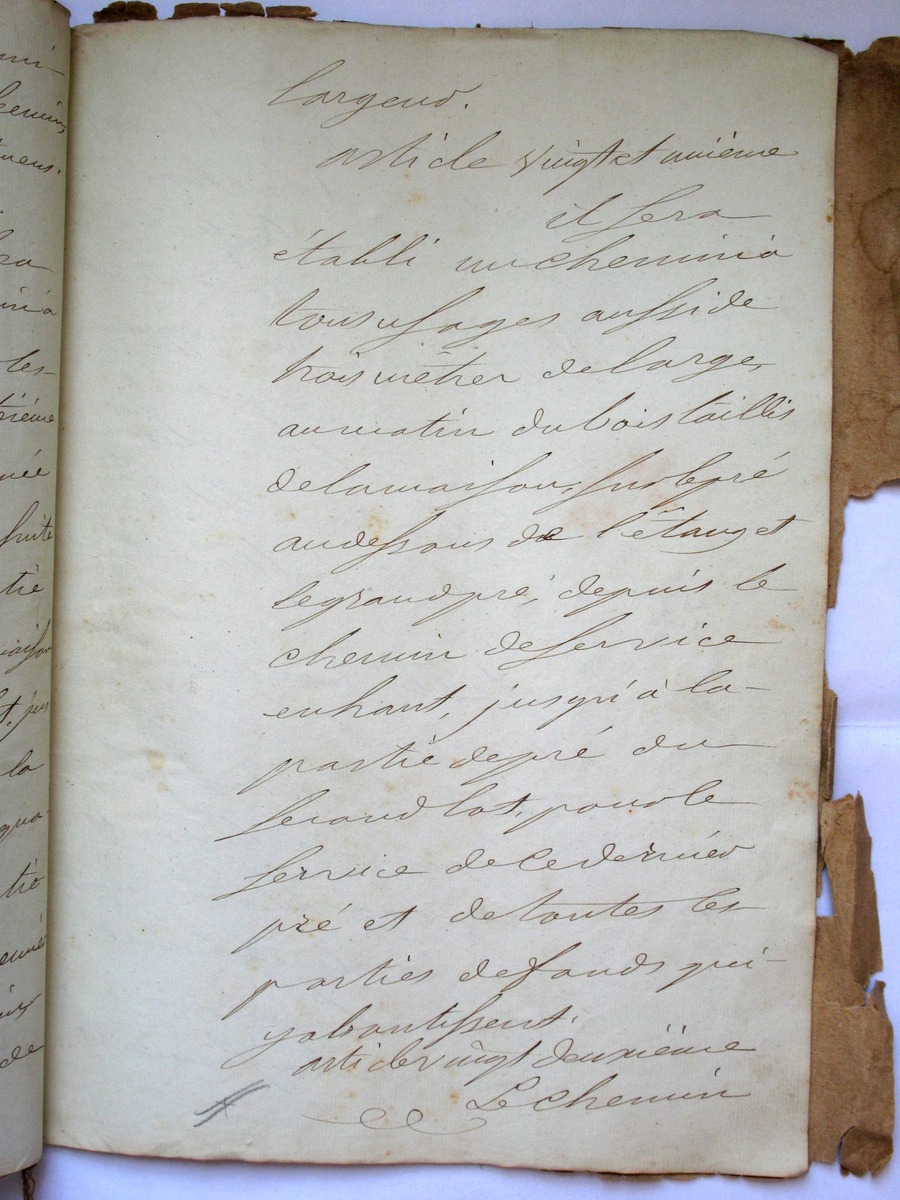 mi-
chemin,
mens.
la
min à
les-
trième
née
suite
tié
maison
t, jus
la
qua-
tre
de
largeur.
article vingt et unième
il sera
établi un chemin à
tous usages aussi de
trois mètres de large,
au matin du bois taillis
de la maison, sur le pré
au dessous de l'étang et
le grand pré, depuis le
chemin de service
en haut, jusqu'à la-
partie de pré du
second lot, pour le
service de ce dernier
pré et de toutes les-
parties de fonds qui-
y aboutissent.
article vingt deuxième
Le chemin